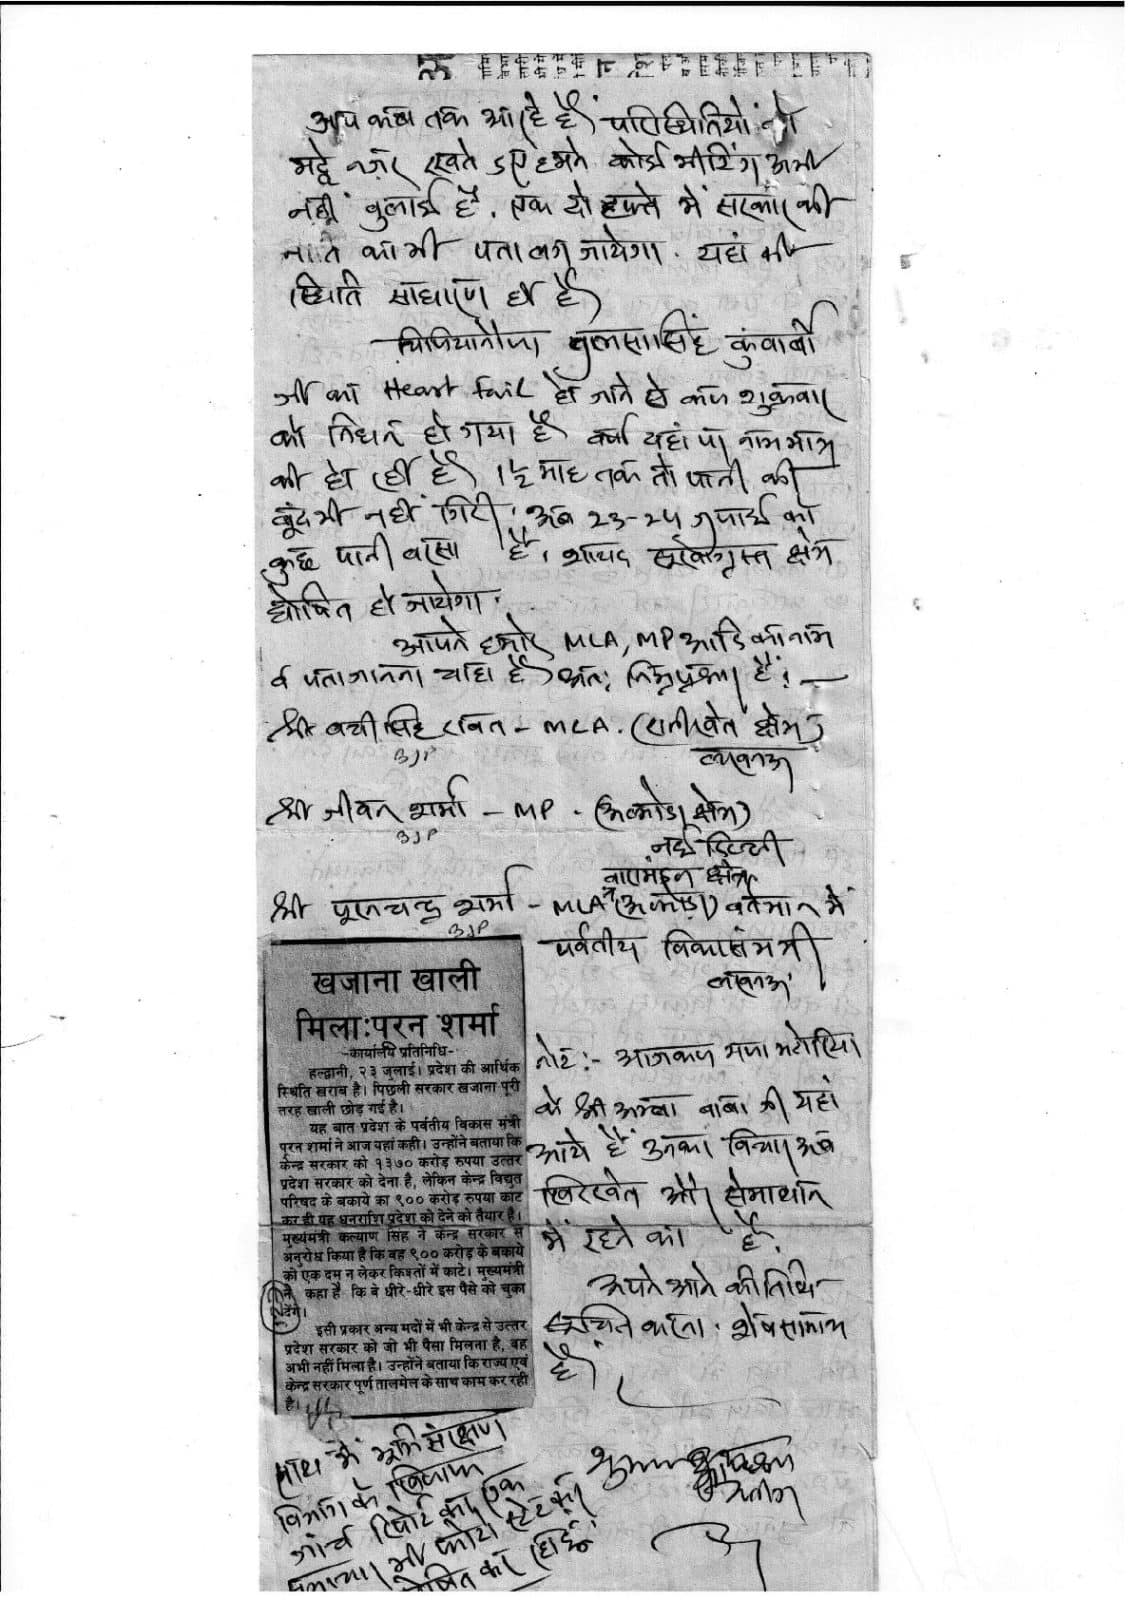 आप कब तक आ रहे हैं परिस्थितियों को
मद्दे नज़र रखते हुए हमने कोई मीटिंग अभी
नहीं बुलाई है. एक दो हफ्ते में सरकार की
का भी पता लग जायेगा. यहां की
स्थिति साधारण ही है
कुंवार्बी
जी का Heart fail हो जाने से कल शुक्रवार
को निधन हो गया है वर्षा यहां पर नाम मात्र
की हो रही है 1½ माह तक तो पानी की
बूंद भी नहीं गिरी. अब 23-24 जुलाई को
कुछ पानी बरसा है. शायद सूखाग्रस्त क्षेत्र
घोषित हो जायेगा.
आपने हमारे MLA, MP आदि का नाम
व पता जानना चाहा है अतः निम्नप्रकार है: —
श्री बची सिंह रावत - MLA. (रानीखेत क्षेत्र)
BJP
लखनऊ
श्री जीवन शर्मा - MP - (अल्मोड़ा क्षेत्र)
BJP
नई दिल्ली
बारामंडल क्षेत्र
श्री पूरनचन्द्र शर्मा - MLA (अल्मोड़ा) वर्तमान में
BJP
पर्वतीय विकास मंत्री
लखनऊ
खजाना खाली
मिला:परन शर्मा
-कार्यालय प्रतिनिधि-
हल्द्वानी, २३ जुलाई। प्रदेश की आर्थिक
स्थिति खराब है। पिछली सरकार खजाना पूरी
तरह खाली छोड़ गई है।
यह बात प्रदेश के पर्वतीय विकास मंत्री
पूरन शर्मा ने आज यहां कही। उन्होंने बताया कि
केन्द्र सरकार को १३७० करोड़ रुपया उत्तर
प्रदेश सरकार को देना है, लेकिन केन्द्र विद्युत
परिषद के बकाये का ९०० करोड़ रुपया काट
कर ही यह धनराशि प्रदेश को देने को तैयार है।
मुख्यमंत्री कल्याण सिंह ने केन्द्र सरकार से
अनुरोध किया है कि वह ९०० करोड़ के बकाये
को एक दम न लेकर किश्तों में काटे। मुख्यमंत्री
ने कहा है कि वे धीरे-धीरे इस पैसे को चुका
देंगे।
इसी प्रकार अन्य मदों में भी केन्द्र से उत्तर
प्रदेश सरकार को जो भी पैसा मिलता है, वह
अभी नहीं मिला है। उन्होंने बताया कि राज्य एवं
केन्द्र सरकार पूर्ण तालमेल के साथ काम कर रही
है।
नोट:- आजकल
के श्री अम्बा बाबा जी यहां
आये हैं उनका विचार अब
और
में रहने का है.
अपने आने की तिथि
सूचित करना. शेष सामान्य
है।
साथ में भूमि संरक्षण
विभाग के खिलाफ
जांच रिपोर्ट का एक
भी फोटो स्टेट कर
प्रेषित कर रहा हूँ